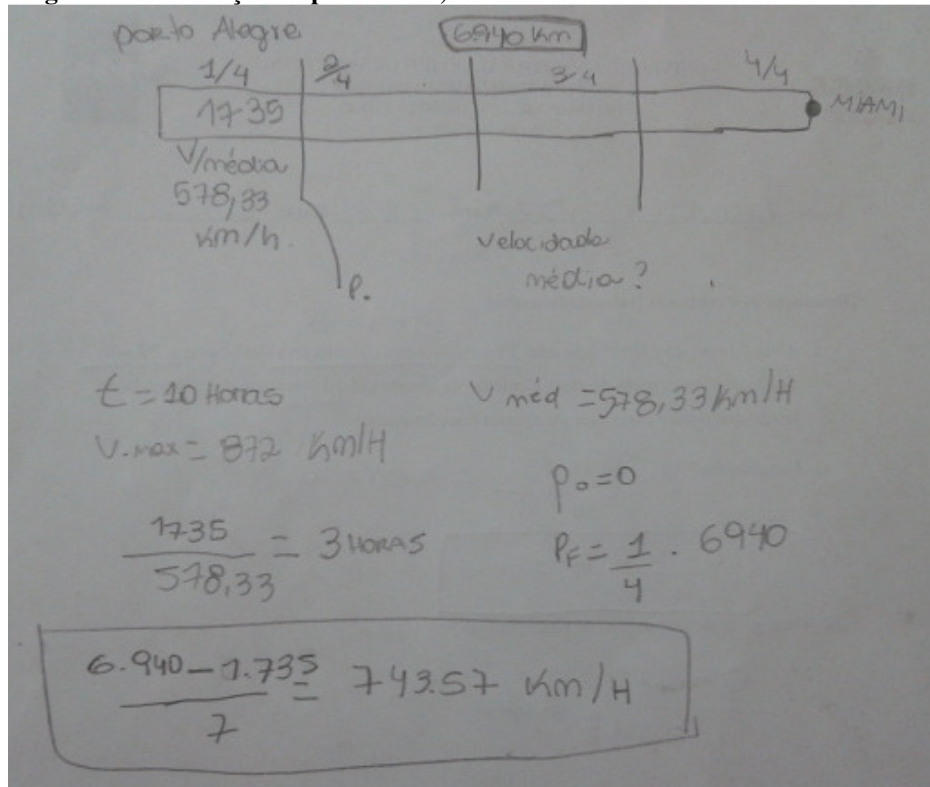 porto Alegre 6940 Km
1/4 2/4 3/4 4/4
1735 MIAMI
V/média
578,33
Km/h.
velocidade
média?
P.
t = 10 Horas V méd = 578,33 Km/H
V.max = 872 Km/H
p₀=0
1735/578,33 = 3 HORAS
PF = 1/4 . 6940
6.940-1.735/7 = 743.57 Km/H